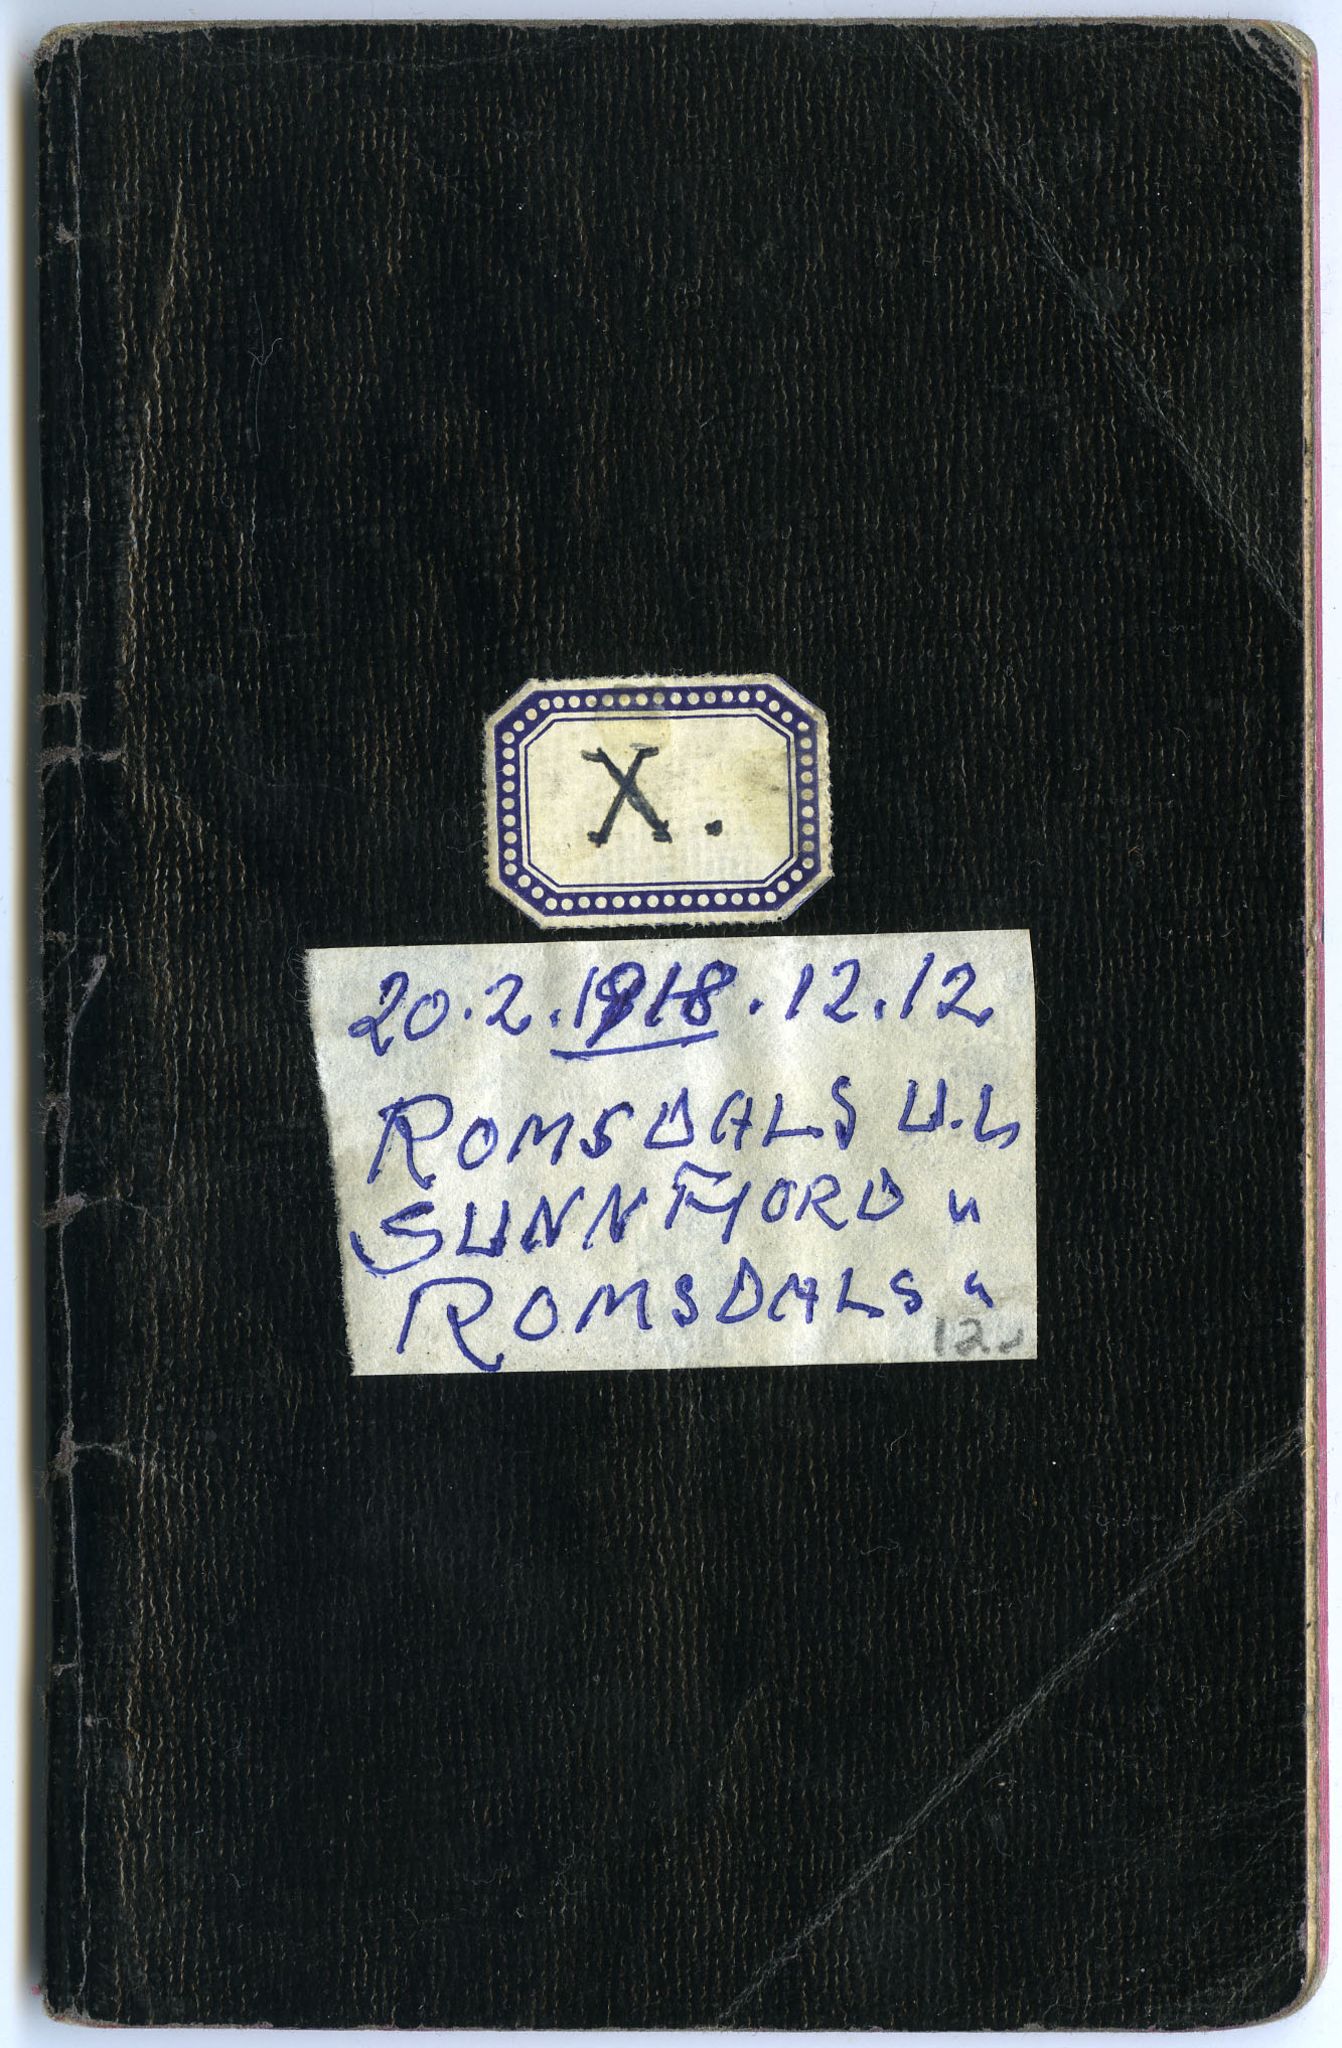 X.
20.2.1918.12.12
ROMSDALS U.L
SUNNFJORD "
ROMSDALS "
12